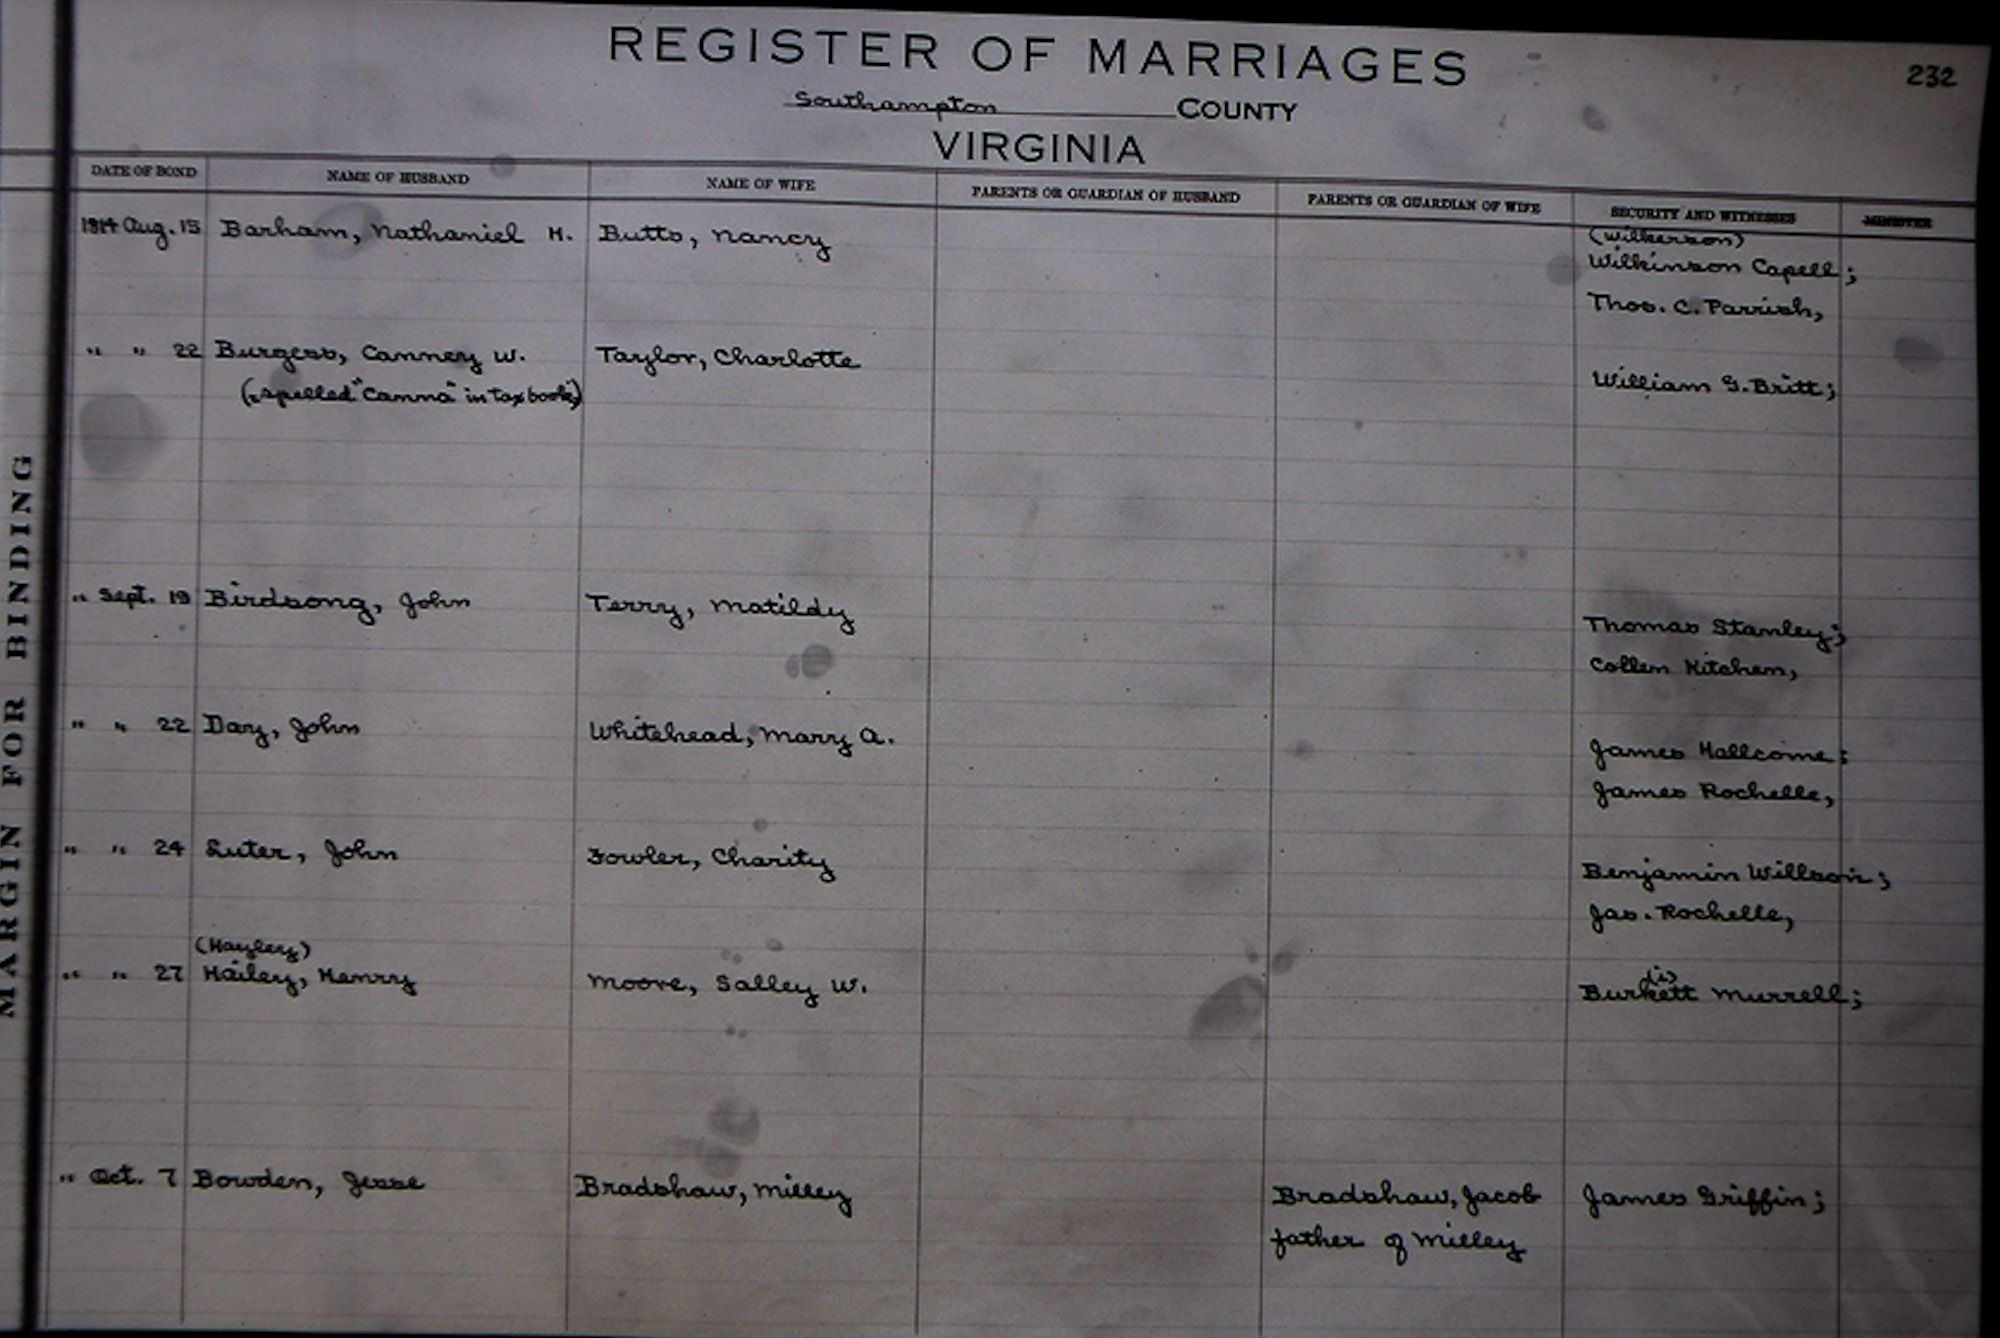 REGISTER OF MARRIAGES
232
Southampton COUNTY
VIRGINIA
MARGIN FOR BINDING
DATE OF BOND NAME OF HUSBAND NAME OF WIFE PARENTS OR GUARDIAN OF HUSBAND PARENTS OR GUARDIAN OF WIFE SECURITY AND WITNESSES MINISTER
(Wilkerson)
1814 Aug. 15 Barham, Nathaniel H. Butts, Nancy Wilkinson Capell;
Thos. C. Parrish,
" " 22 Burgess, Cammey W. Taylor, Charlotte
(spelled "Camma" in tax book) William G. Britt;
" Sept. 19 Birdsong, John Terry, Matildy Thomas Stanley;
Collen Kitchen,
" " 22 Day, John Whitehead, Mary A. James Hallcome;
James Rochelle,
" " 24 Luter, John Fowler, Charity Benjamin Willson;
Jas. Rochelle,
(Hayley) (i)
" " 27 Hailey, Henry Moore, Salley W. Burkett Murrell;
" Oct. 7 Bowden, Jesse Bradshaw, Milley Bradshaw, Jacob James Griffin;
father of Milley